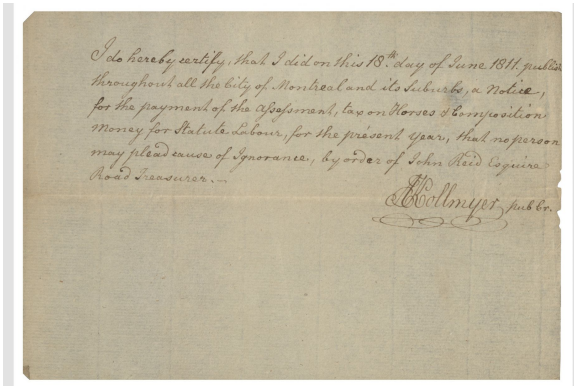 I do hereby certify, that I did on this 18th day of June 1811. publish
throughout all the City of Montreal and its Suburbs, a Notice,
for the payment of the Assessment, tax on Horses & Composition
Money for Statute Labour, for the present year, that no person
may plead cause of Ignorance, by order of John Reid Esquire
Road Treasurer.—
Kollmyer pub Cr.